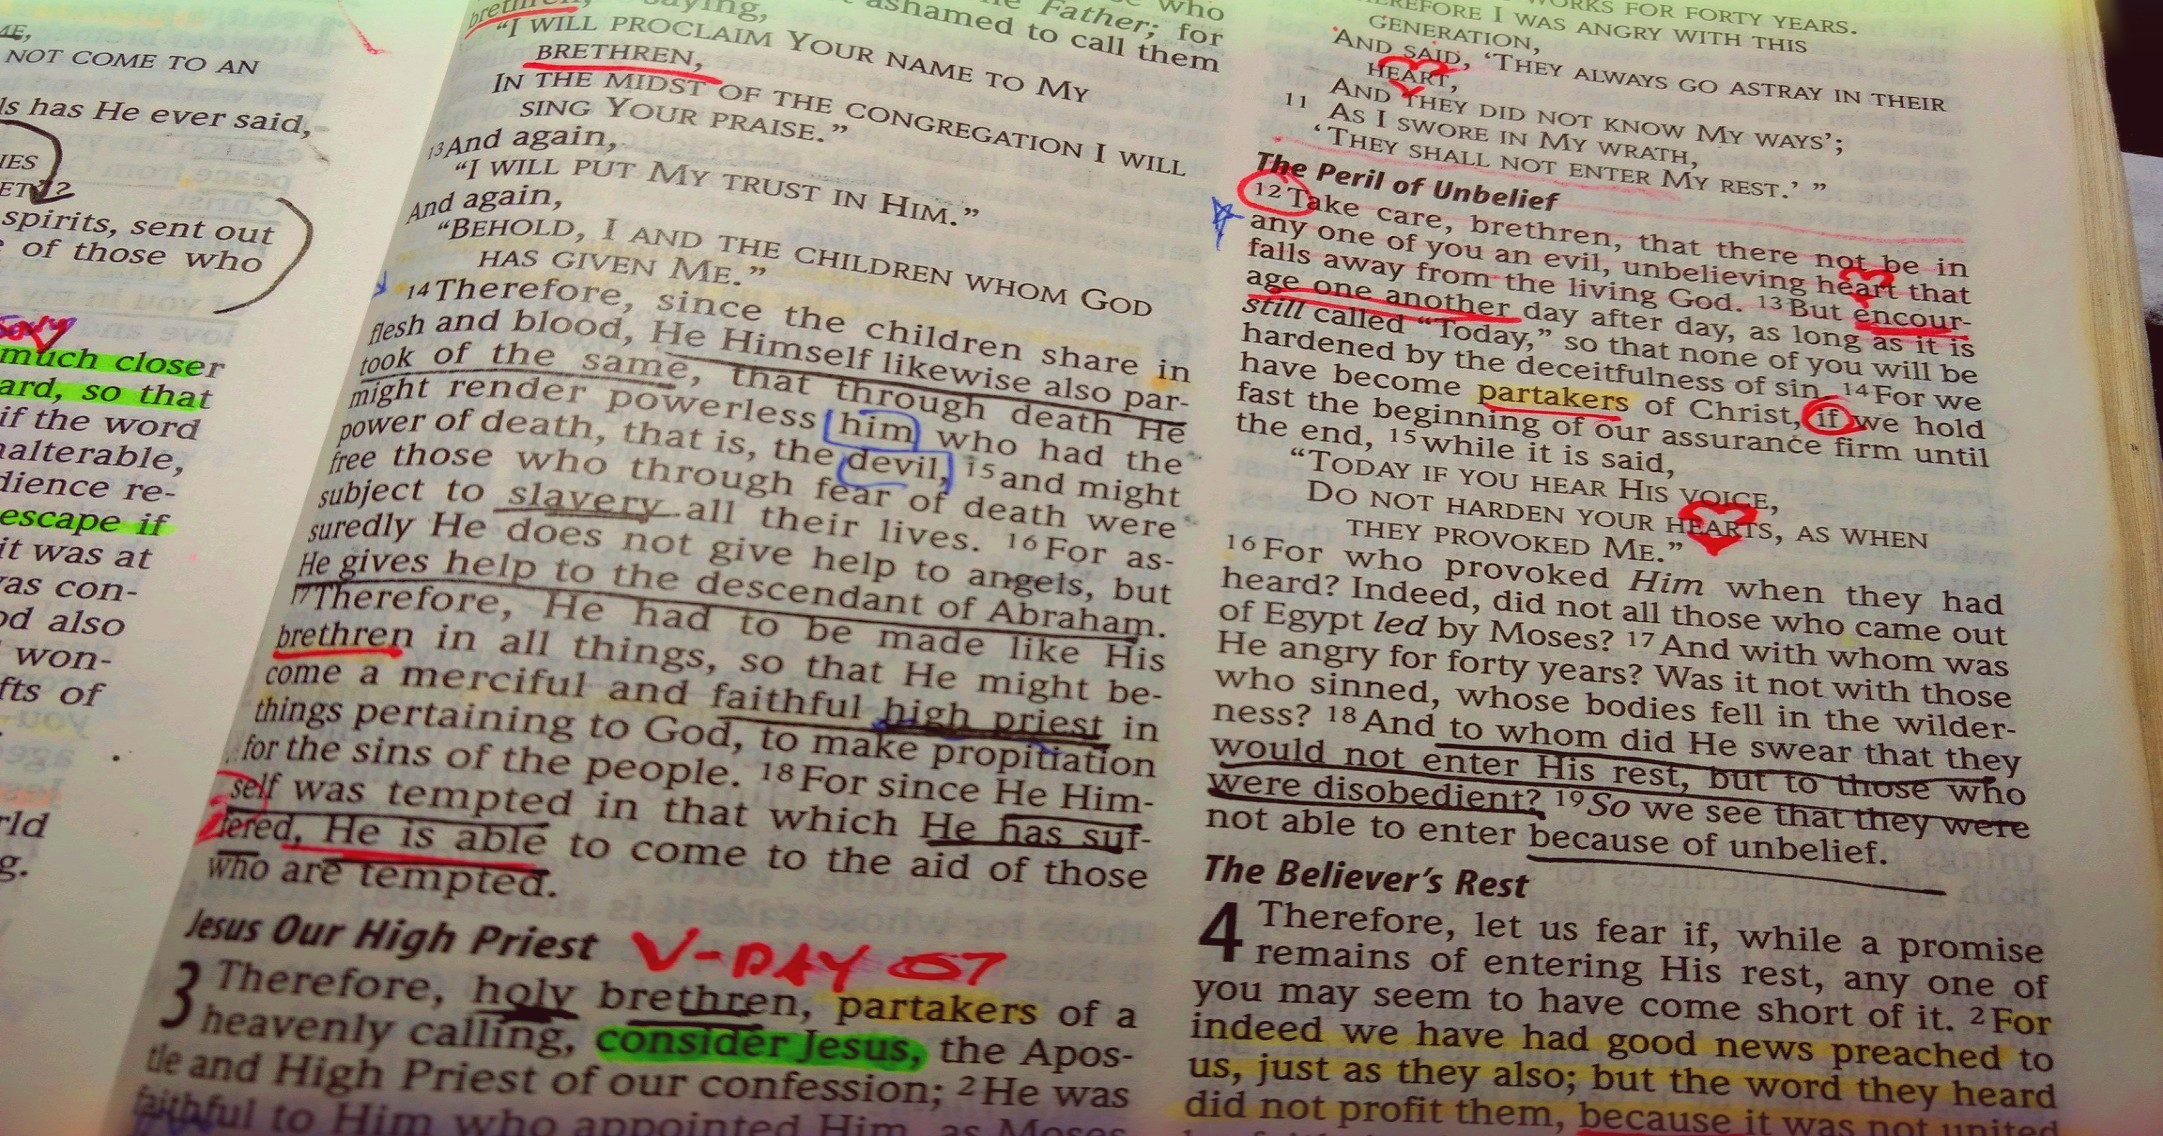 ME,
NOT COME TO AN
ls has He ever said,
IES
ET?
spirits, sent out
of those who
much closer
ard, so that
if the word
nalterable,
dience re-
escape if
it was at
vas con-
od also
won-
fts of
rld
g.
brethren, saying,
ashamed to call them
Father; for
who
"I WILL PROCLAIM YOUR NAME TO MY
BRETHREN,
IN THE MIDST OF THE CONGREGATION I WILL
SING YOUR PRAISE."
13 And again,
"I WILL PUT MY TRUST IN HIM."
And again,
"BEHOLD, I AND THE CHILDREN WHOM GOD
HAS GIVEN ME."
14 Therefore, since the children share in
flesh and blood, He Himself likewise also par-
took of the same, that through death He
might render powerless him who had the
power of death, that is, the devil, 15 and might
free those who through fear of death were
subject to slavery all their lives. 16 For as-
suredly He does not give help to angels, but
He gives help to the descendant of Abraham.
17 Therefore, He had to be made like His
brethren in all things, so that He might be-
come a merciful and faithful high priest in
things pertaining to God, to make propitiation
for the sins of the people. 18 For since He Him-
self was tempted in that which He has suf-
fered, He is able to come to the aid of those
who are tempted.
Jesus Our High Priest V-DAY 07
3 Therefore, holy brethren, partakers of a
heavenly calling, consider Jesus, the Apos-
tle and High Priest of our confession; 2 He was
faithful to Him who appointed Him, as Moses
WORKS FOR FORTY YEARS.
EREFORE I WAS ANGRY WITH THIS
GENERATION,
AND SAID, 'THEY ALWAYS GO ASTRAY IN THEIR
HEART,
AND THEY DID NOT KNOW MY WAYS';
11 AS I SWORE IN MY WRATH,
'THEY SHALL NOT ENTER MY REST.' "
The Peril of Unbelief
12 Take care, brethren, that there not be in
any one of you an evil, unbelieving heart that
falls away from the living God. 13 But encour-
age one another day after day, as long as it is
still called "Today," so that none of you will be
hardened by the deceitfulness of sin. 14 For we
have become partakers of Christ, if we hold
fast the beginning of our assurance firm until
the end, 15 while it is said,
"TODAY IF YOU HEAR HIS VOICE,
DO NOT HARDEN YOUR HEARTS, AS WHEN
THEY PROVOKED ME."
16 For who provoked Him when they had
heard? Indeed, did not all those who came out
of Egypt led by Moses? 17 And with whom was
He angry for forty years? Was it not with those
who sinned, whose bodies fell in the wilder-
ness? 18 And to whom did He swear that they
would not enter His rest, but to those who
were disobedient? 19 So we see that they were
not able to enter because of unbelief.
The Believer's Rest
4 Therefore, let us fear if, while a promise
remains of entering His rest, any one of
you may seem to have come short of it. 2 For
indeed we have had good news preached to
us, just as they also; but the word they heard
did not profit them, because it was not united